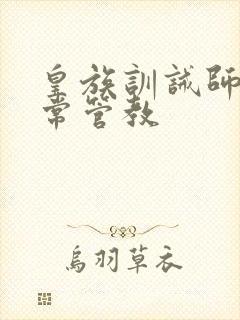 皇族訓誡師
常管教
烏羽草衣